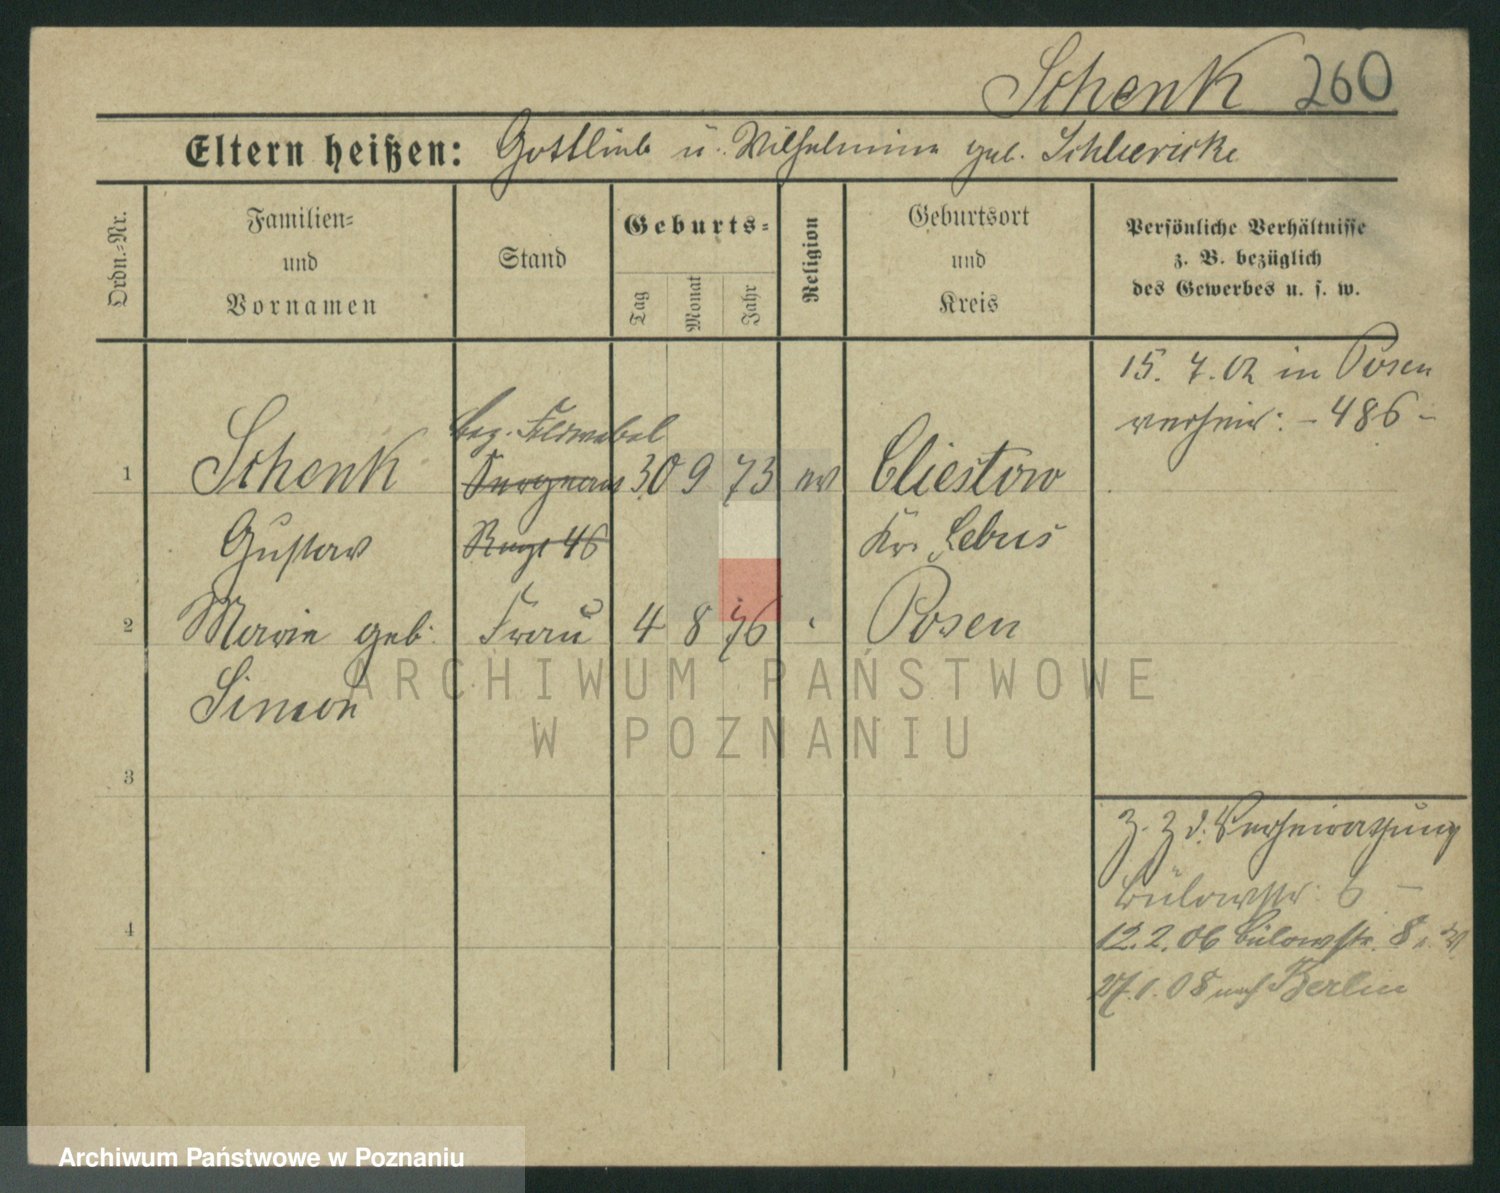 Schenk 260
Eltern heißen: Gottlieb u. Wilhelmine geb. Schliericke
Ordn.-Nr.
Familien-
und
Vornamen
Stand
Geburts-
Tag
Monat
Jahr
Religion
Geburtsort
und
Kreis
Persönliche Verhältnisse
z. B. bezüglich
des Gewerbes u. s. w.
15. 7. 02 in Posen
verheir: - 486 -
Feldwebel
1 Schenk Sergeant 30 9 73 ev Cliestow
Gustav Regt 46 Kr. Lebus
2 Marie geb: Frau 4 8 76 Posen
Simon
3
4
z. Z d. Verheirathung
Bülowstr. 6 -
12. 2. 06 Bülowstr. 8
27. 1. 08 nach Berlin
ARCHIWUM PAŃSTWOWE
W POZNANIU
Archiwum Państwowe w Poznaniu